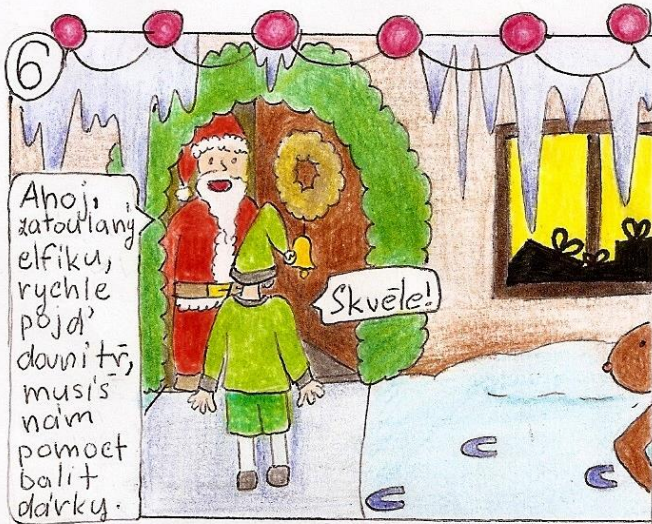 6
Ahoj,
zatoulaný
elfíku,
rychle
pojď
dovnitř,
musíš
nám
pomoct
balit
dárky.
Skvěle!